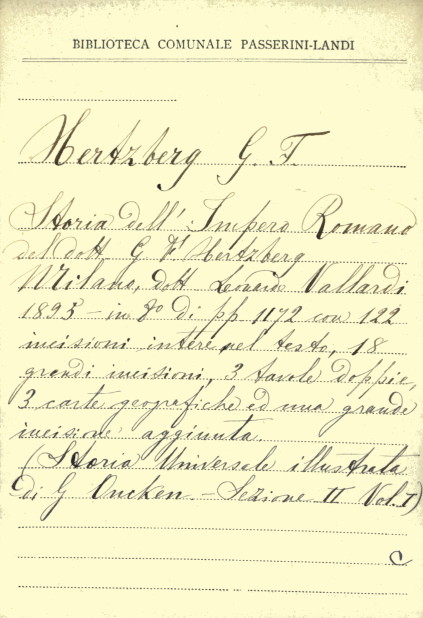 BIBLIOTECA COMUNALE PASSERINI-LANDI
Hertzberg G. F.
Storia dell' Impero Romano
del dott. G F Hertzberg
Milano, dott Leonardo Vallardi
1895 - in 8º di pp 1172 con 122
incisioni intere nel testo, 18
grandi incisioni, 3 tavole doppie,
3 carte geografiche ed una grande
incisione aggiunta.
(Storia Universale illustrata
di G Oncken. - Sezione II Vol. I)
C